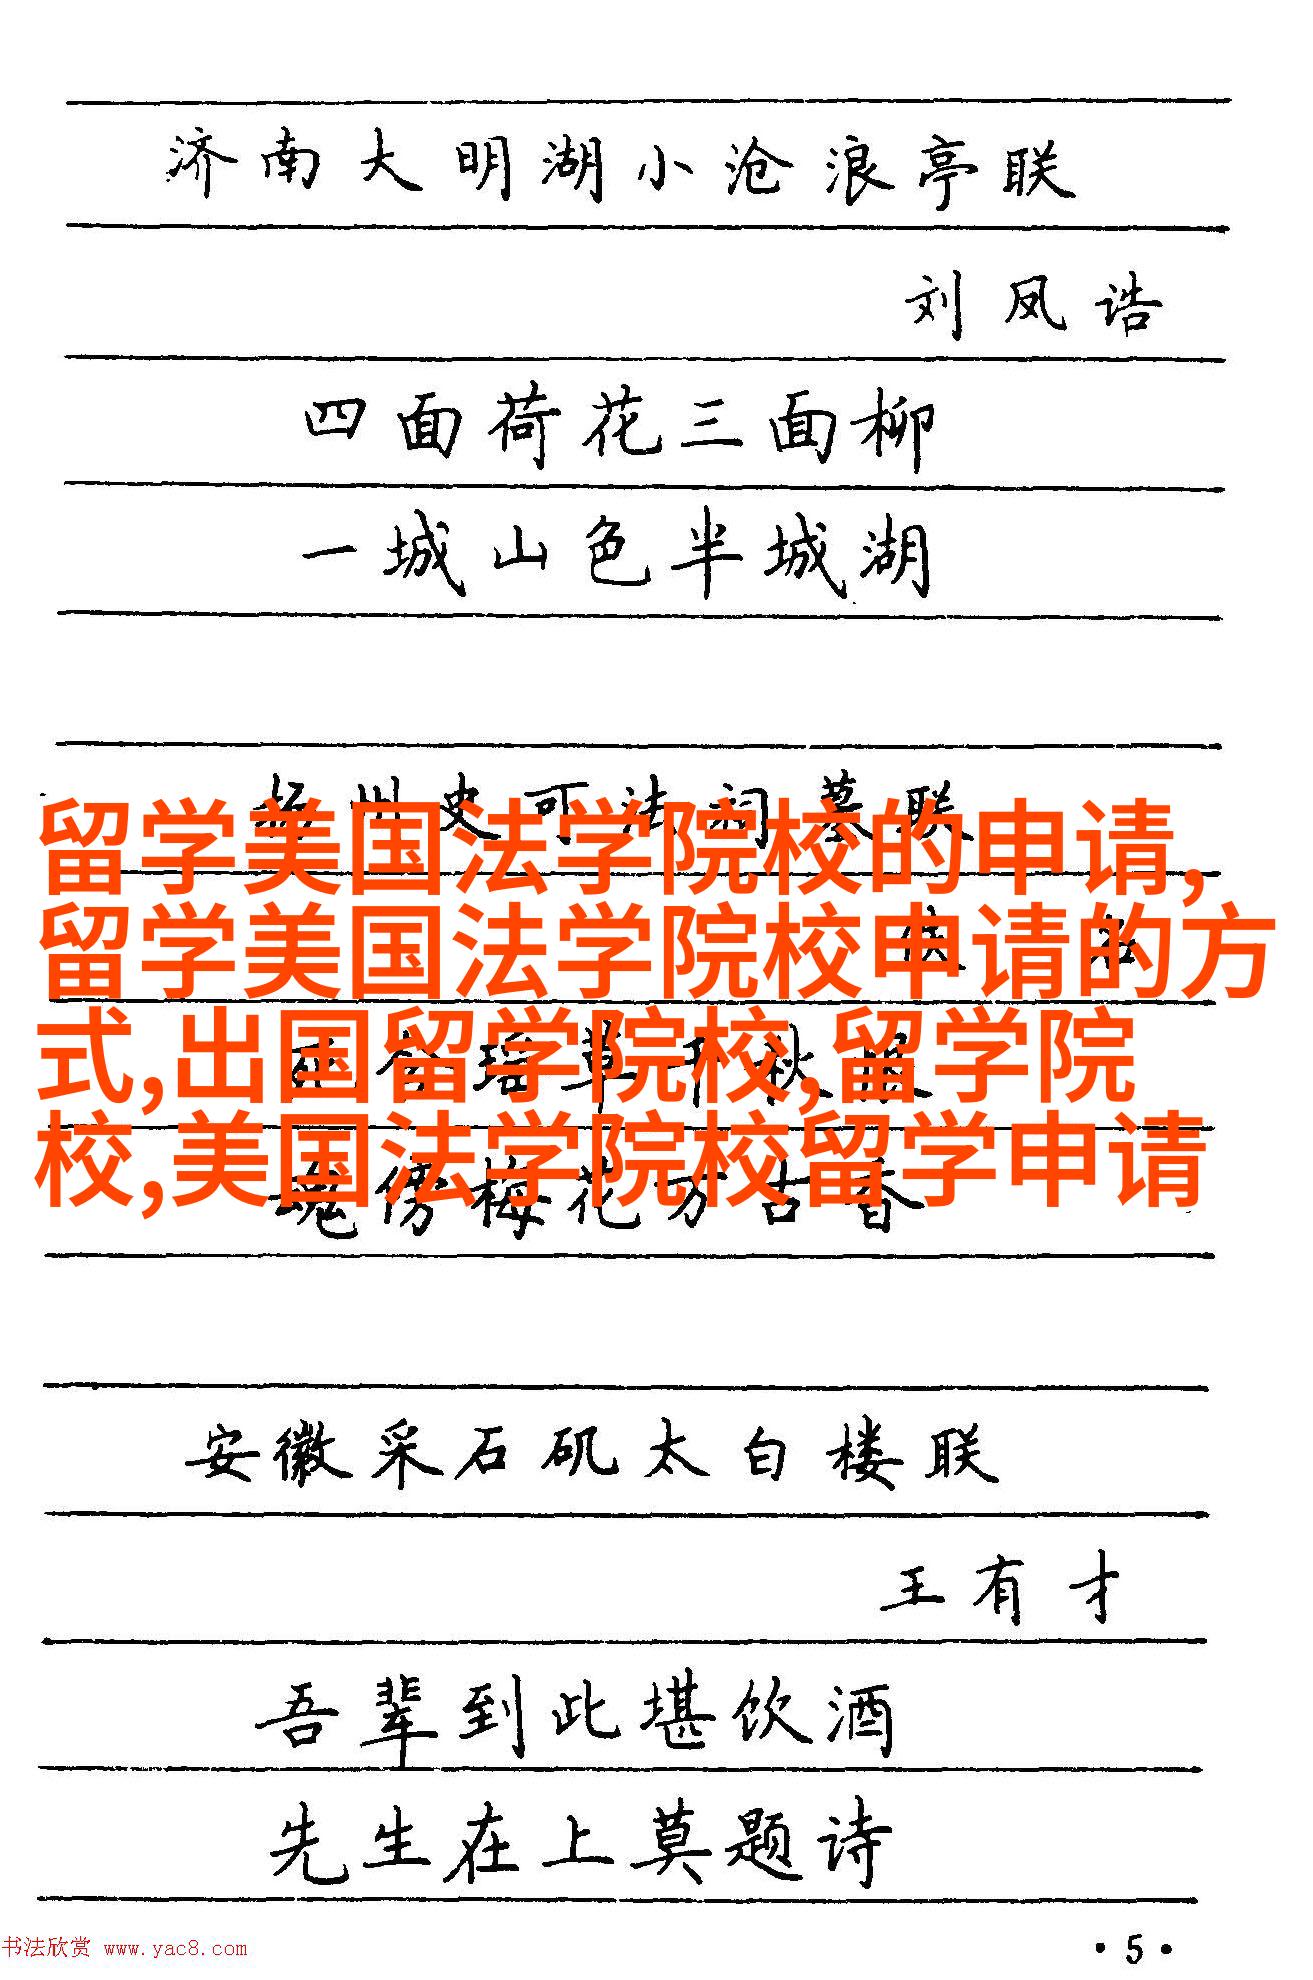 济南大明湖小沧浪亭联
刘凤诰
四面荷花三面柳
一城山色半城湖
扬州史可法祠墓联
留学美国法学院校的申请,
留学美国法学院校申请的方
式,出国留学院校,留学院
校,美国法学院校留学申请
魂傍梅花万古香
安徽采石矶太白楼联
王有才
吾辈到此堪饮酒
先生在上莫题诗
书法欣赏 www.yac8.com
·5·